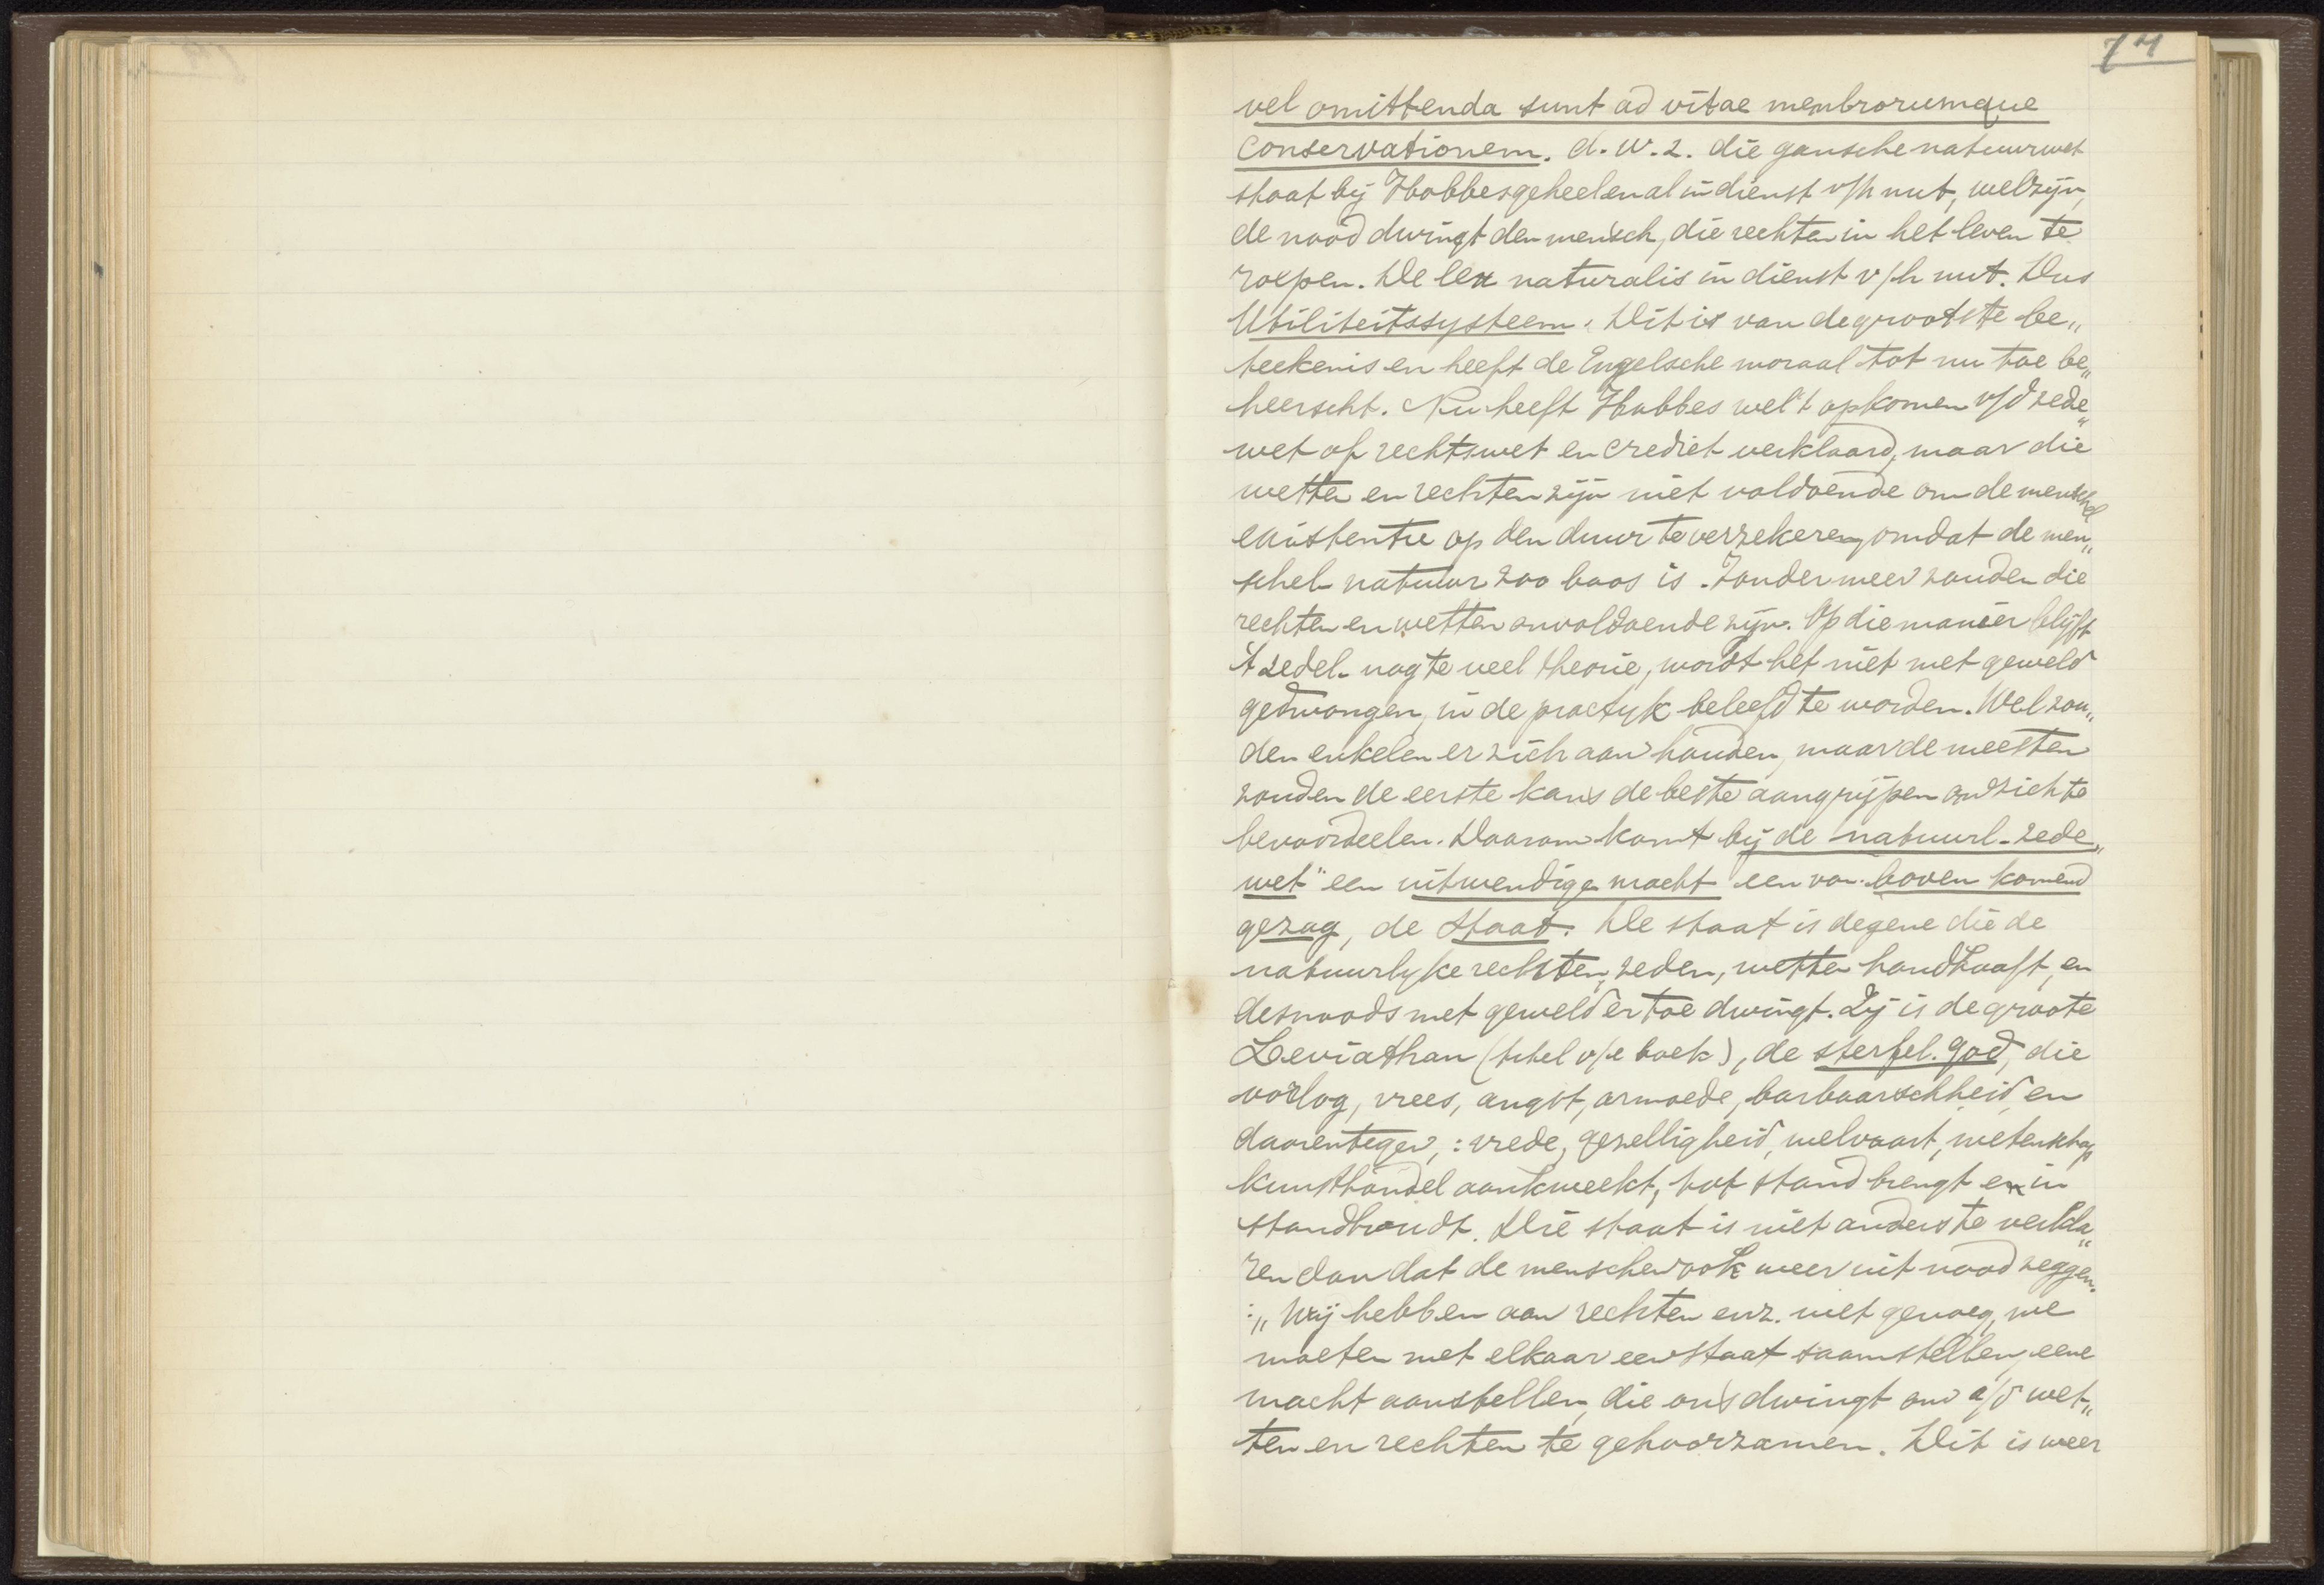 74
vel omittenda sunt ad vitae membrorumque
conservationem. d.w.z. die gansche natuurwet
staat bij Hobbes geheel en al in dienst v/h nut, welzijn,
de nood dwingt den mensch, die rechten in het leven te
roepen. De lex naturalis in dienst v/h nut. Dus
Utiliteitssysteem. Dit is van de grootste be„
teekenis en heeft de Engelsche moraal tot nu toe be„
heerscht. Nu heeft Hobbes wel 't opkomen v/d zede„
wet op rechtswet en crediet verklaard, maar die
wetten en rechten zijn niet voldoende om de menschel
existentie op den duur te verzekeren, omdat de men„
schel. natuur zoo boos is. Zonder meer zouden die
rechten en wetten onvoldoende zijn. Op die manier blijft
't zedel. nog te veel theorie, wordt het niet met geweld
gedwongen, in de practyk beleefd te worden. Wel zou„
den enkelen er zich aan houden, maar de meesten
zouden de eerste kans de beste aangrijpen om zich te
bevoordeelen. Daarom komt bij de natuurl. zede„
wet" een uitwendige macht een van boven komend
gezag, de Staat. De staat is degene die de
natuurlyke rechten, zeden, wetten handhaaft, en
desnoods met geweld er toe dwingt. Zij is de groote
Leviathan (titel v/e boek), de sterfel. god, die
oorlog, vrees, angst, armoede, barbaarschheid en
daarentegen,: vrede, gezelligheid, welvaart, wetenschap
kunsthandel aankweekt, tot stand brengt en in
stand houdt. Die staat is niet anders te verkla„
ren dan dat de menschen ook weer uit nood zeggen.
:„Wij hebben aan rechten enz. niet genoeg, we
moeten met elkaar een staat saamstellen, eene
macht aanstellen, die ons dwingt om a/d wet„
ten en rechten te gehoorzamen. Dit is weer